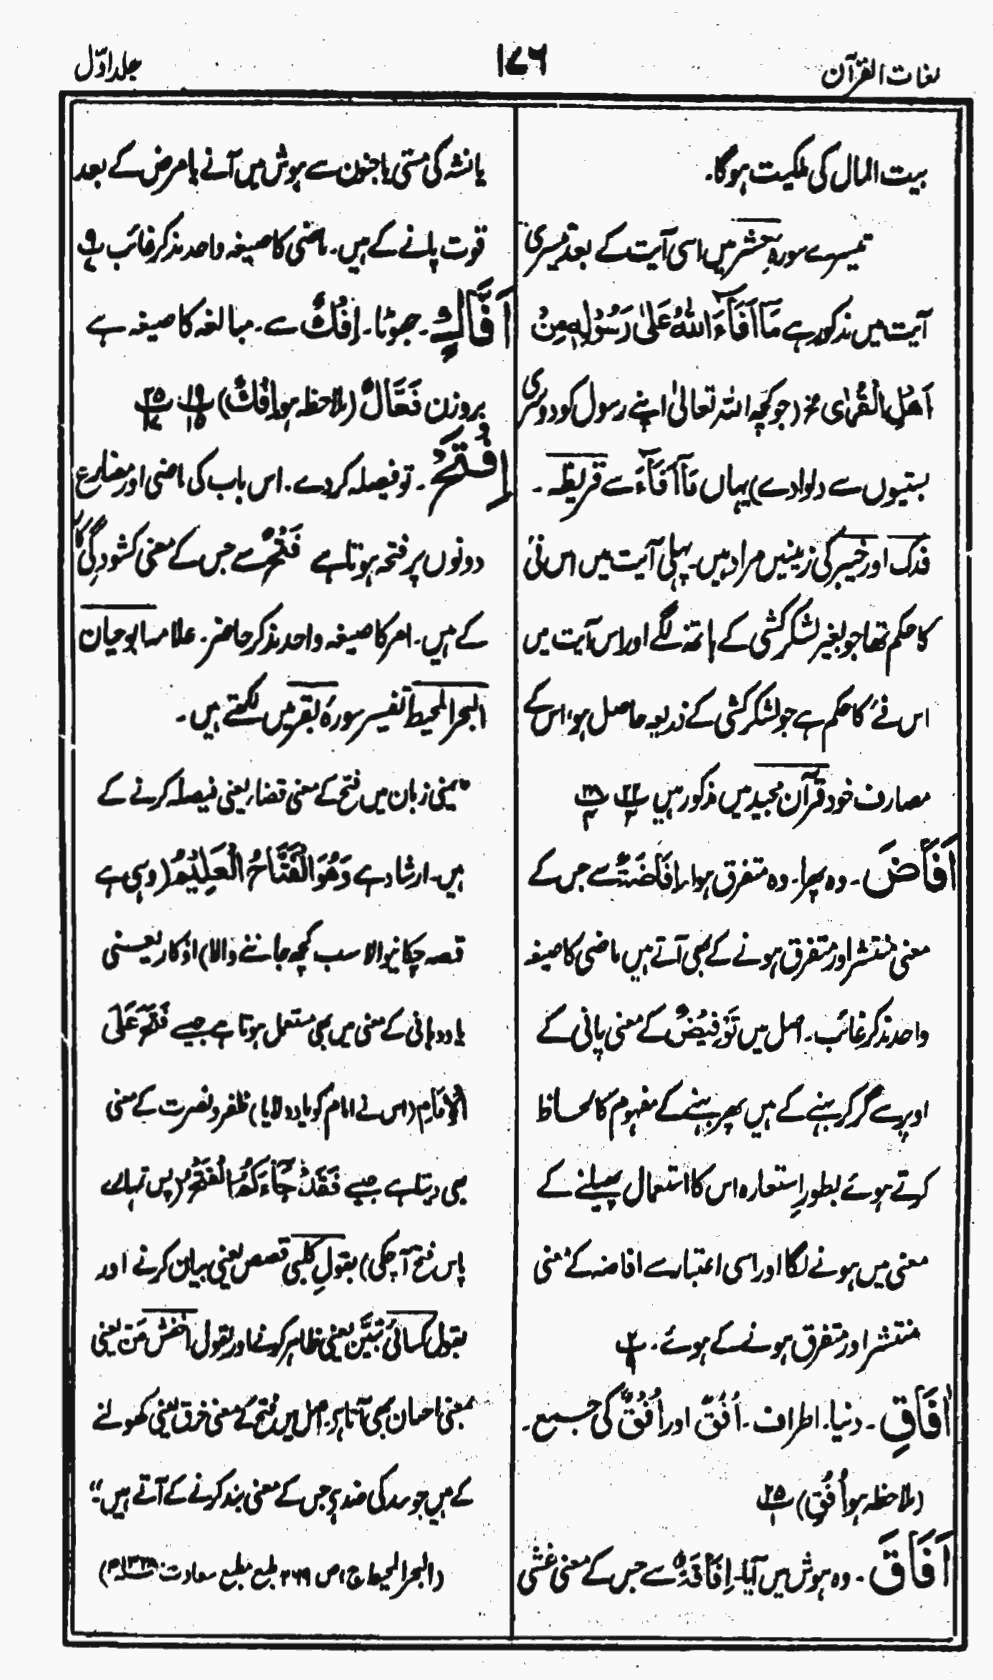 لغات القرآن
۱۷۶
جلد اوّل
بیت المال کی ملکیت ہوگا۔
تیسرے سورہ حشر میں اسی آیت کے بعد تیسری
آیت میں مذکور ہے مَآ اَفَآءَ اللّٰهُ عَلٰی رَسُوْلِهٖ مِنْ
اَهْلِ الْقُرٰی (جو کچھ اللہ تعالیٰ اپنے رسول کو دوسری
بستیوں سے دلوادے) یہاں مَآ اَفَآءَ سے قریظہ۔
فدک اور خیبر کی زمینیں مراد ہیں۔ پہلی آیت میں اس فئ
کا حکم تھا جو بغیر لشکر کشی کے ہاتھ لگے اور اس آیت میں
اس فئے کا حکم ہے جو لشکر کشی کے ذریعہ حاصل ہو، اس کے
مصارف خود قرآن مجید میں مذکور ہیں ۲۲/۲ ۲۸/۴
اَفَاضَ۔ وہ پھرا۔ وہ متفرق ہوا۔ اِفَاضَةٌ سے جس کے
معنی منتشر اور متفرق ہونے کے بھی آتے ہیں ماضی کا صیغہ
واحد مذکر غائب۔ اصل میں تَفْوِیْضٌ کے معنی پانی کے
اوپر سے گر کر بہنے کے ہیں پھر بہنے کے مفہوم کا لحاظ
کرتے ہوئے بطور اِستعارہ اس کا استعمال پھیلنے کے
معنی میں ہونے لگا اور اسی اعتبار سے افاضہ کے معنی
منتشر اور متفرق ہونے کے ہوئے۔ ۲/۹
اٰفَاقِ۔ دنیا۔ اطراف۔ اُفُقٌ اور اُفْقٌ کی جمع۔
(ملاحظہ ہو اُفُقٌ) ۲۵/۱
اَفَاقَ۔ وہ ہوش میں آیا۔ اِفَاقَةٌ سے جس کے معنی غشی
یا نشہ کی مستی یا جنون سے ہوش میں آنے یا مرض کے بعد
قوت پانے کے ہیں۔ ماضی کا صیغہ واحد مذکر غائب ۹/۷
اَفَّاكٍ۔ جھوٹا۔ اِفْكٌ سے۔ مبالغہ کا صیغہ ہے
بروزن فَعَّالٌ (ملاحظہ ہو اِفْكٌ) ۱۹/۱۵ ۲۵/۱۷
اِفْتَحْ۔ تو فیصلہ کردے۔ اس باب کی ماضی اور مضارع
دونوں پر فتحہ ہوتا ہے فَتْحٌ سے جس کے معنی کشودگی کار
کے ہیں۔ امر کا صیغہ واحد مذکر حاضر۔ علامہ ابو حیان
البحر المحیط تفسیر سورۂ بقر میں لکھتے ہیں۔
"یمنی زبان میں فتح کے معنی قضاء یعنی فیصلہ کرنے کے
ہیں۔ ارشاد ہے وَهُوَ الْفَتَّاحُ الْعَلِیْمُ (وہی ہے
قصہ چکانیوالا سب کچھ جاننے والا) اذکار یعنی
یاد دہانی کے معنی میں بھی مستعمل ہوتا ہے جیسے فَتَحَ عَلَی
الْاِمَامِ (اس نے امام کو یاد دلایا) ظفر و نصرت کے معنی
بھی دیتا ہے جیسے فَقَدْ جَآءَكُمُ الْفَتْحُ (پس تمہارے
پاس فتح آ چکی) بقولِ کلبی قصص یعنی بیان کرنے اور
بقول کسائی تبیّن یعنی ظاہر کرنے اور بقول اخفش مَنّ یعنی
بمعنی احسان بھی آتا ہے۔ اصل میں فتح کے معنی خرق یعنی کھولنے
کے ہیں جو سد کی ضد ہے جس کے معنی بند کرنے کے آتے ہیں"
(البحر المحیط ج ۱ ص ۲۶۹ طبع مطبع سعادت ۱۳۲۸ھ)